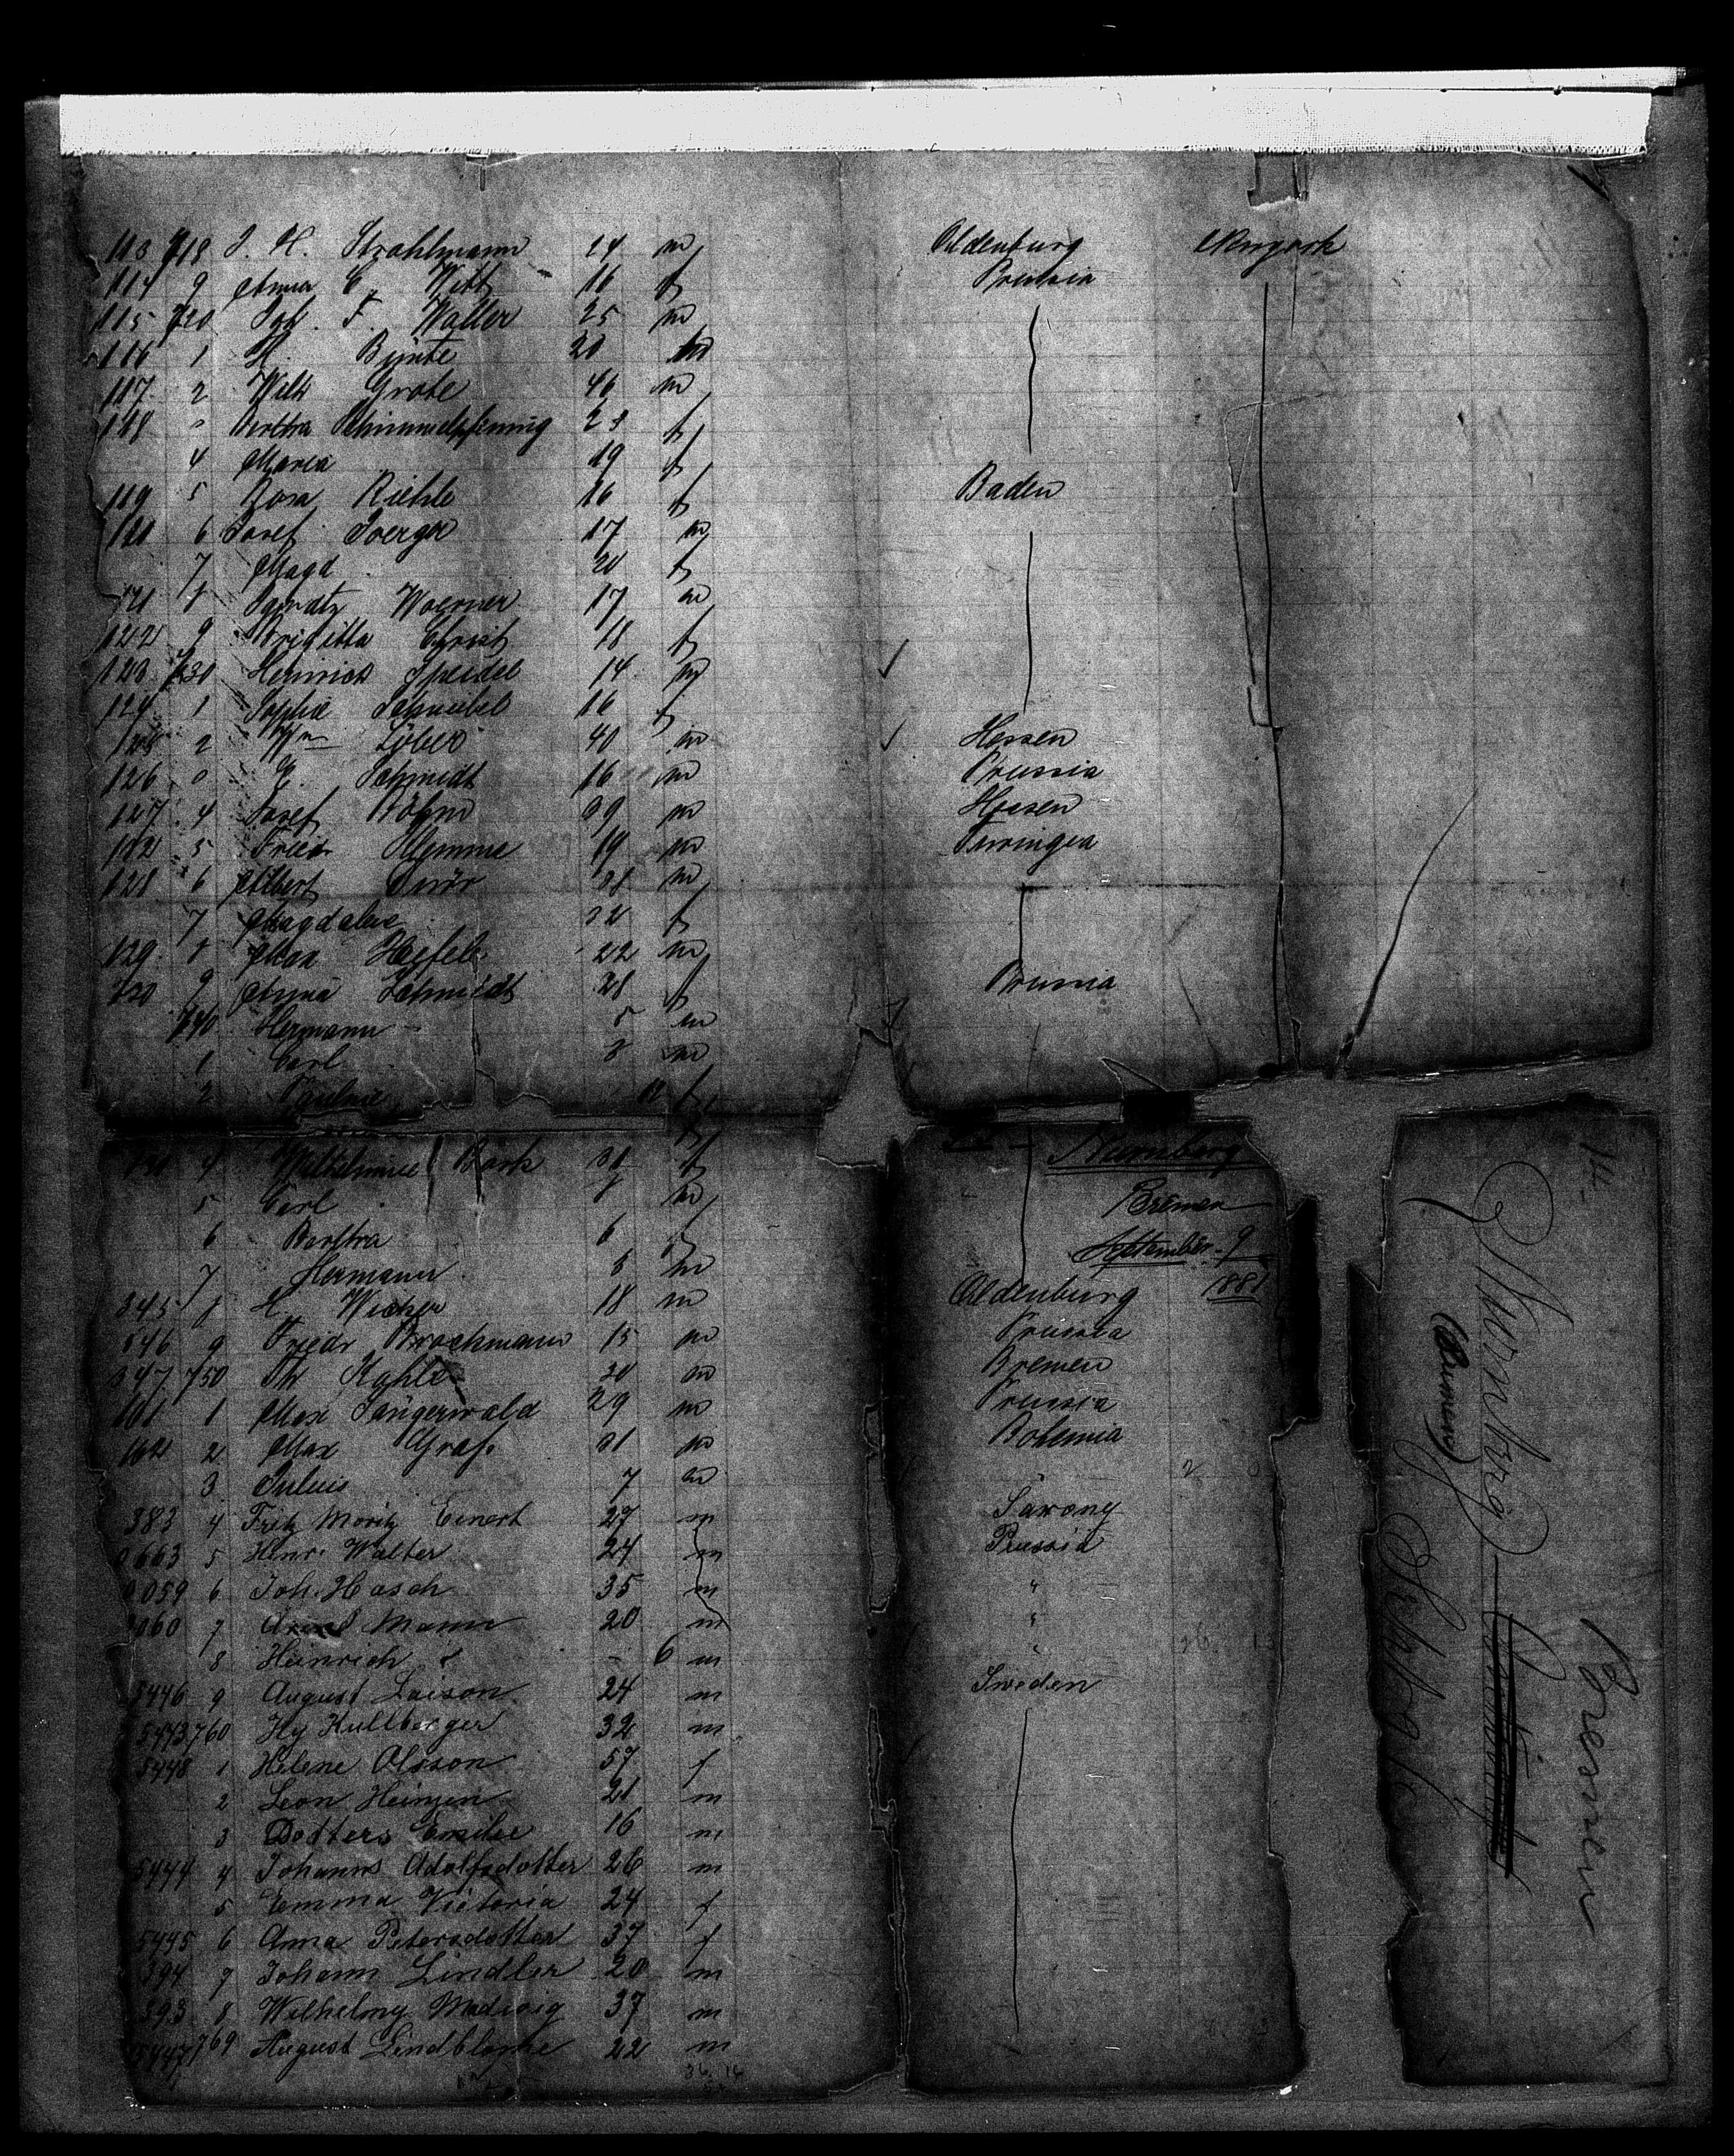 113 718 J. H. Strahlmann 24 m Oldenburg Newyork
114 9 Anna C. Witt 16 f Prussia
115 720 Joh. F. Waller 25 m
116 1 H. Bünte 20 m
117 2 Wilh Grote 46 m
118 3 Bertha Schimmelpfennig 23 f
4 Maria 19 f
119 5 Rosa Riehle 16 f Baden
120 6 Josef Joerger 17 m
7 Magd 20 f
121 8 Woerner 17 m
122 9 Brigitta Christ 18 f
123 730 Heinrich Speidel 14 m
124 1 Sophie 16 f
125 2 Wm Löber 40 m Hessen
126 3 E. Schmidt 16 m Prussia
127 4 Josef Böhm 39 m Hessen
182 5 Friedr Klemme 19 m Turringia
128 6 Albert 38 m
7 Magdalene 32 f
129 8 Max Haefele 22 m
130 9 Anna Schmidt 28 f Prussia
740 Hermann 5 m
1 Carl 3 m
2 Pauline 11 f
131 4 Wilhelmine Bark 31 f Nurnberg
5 Carl 8 m Bremen
6 Bertha 6 f September 9
7 Hermann 3 m 1881
345 8 H. Wicker 18 m Oldenburg
346 9 Friedr Brockmann 15 m Prussia
347 750 Th Kahle 20 m Bremen
161 1 Max Sängerwald 29 m Prussia
162 2 Max Graf 31 m Bohemia
3 Julius 7 m
383 4 Fritz Moritz Einert 27 m Saxony
663 5 Henr. Walter 24 m Prussia
059 6 Joh. Hasch 35 m "
060 7 Mann 20 m "
8 Heinrich " - 6 m "
5446 9 August Laison 24 m Sweden
5443 760 Hy Kullberger 32 m
5448 1 Helene Olsson 57 f
2 Leon Heinjen 21 m
3 Dodters Emilie 16 m
5444 4 Johanns Adolfsdotter 26 m
5 Emma Victoria 24 f
5445 6 Anna Petersdotter 37 f
394 7 Johann Lindler 20 m
393 8 Wilhelmy 37 m
5447 769 August Lindblome 22 m
36 16
Nurnberg
(Bremen)
Septbr 9
Bremen